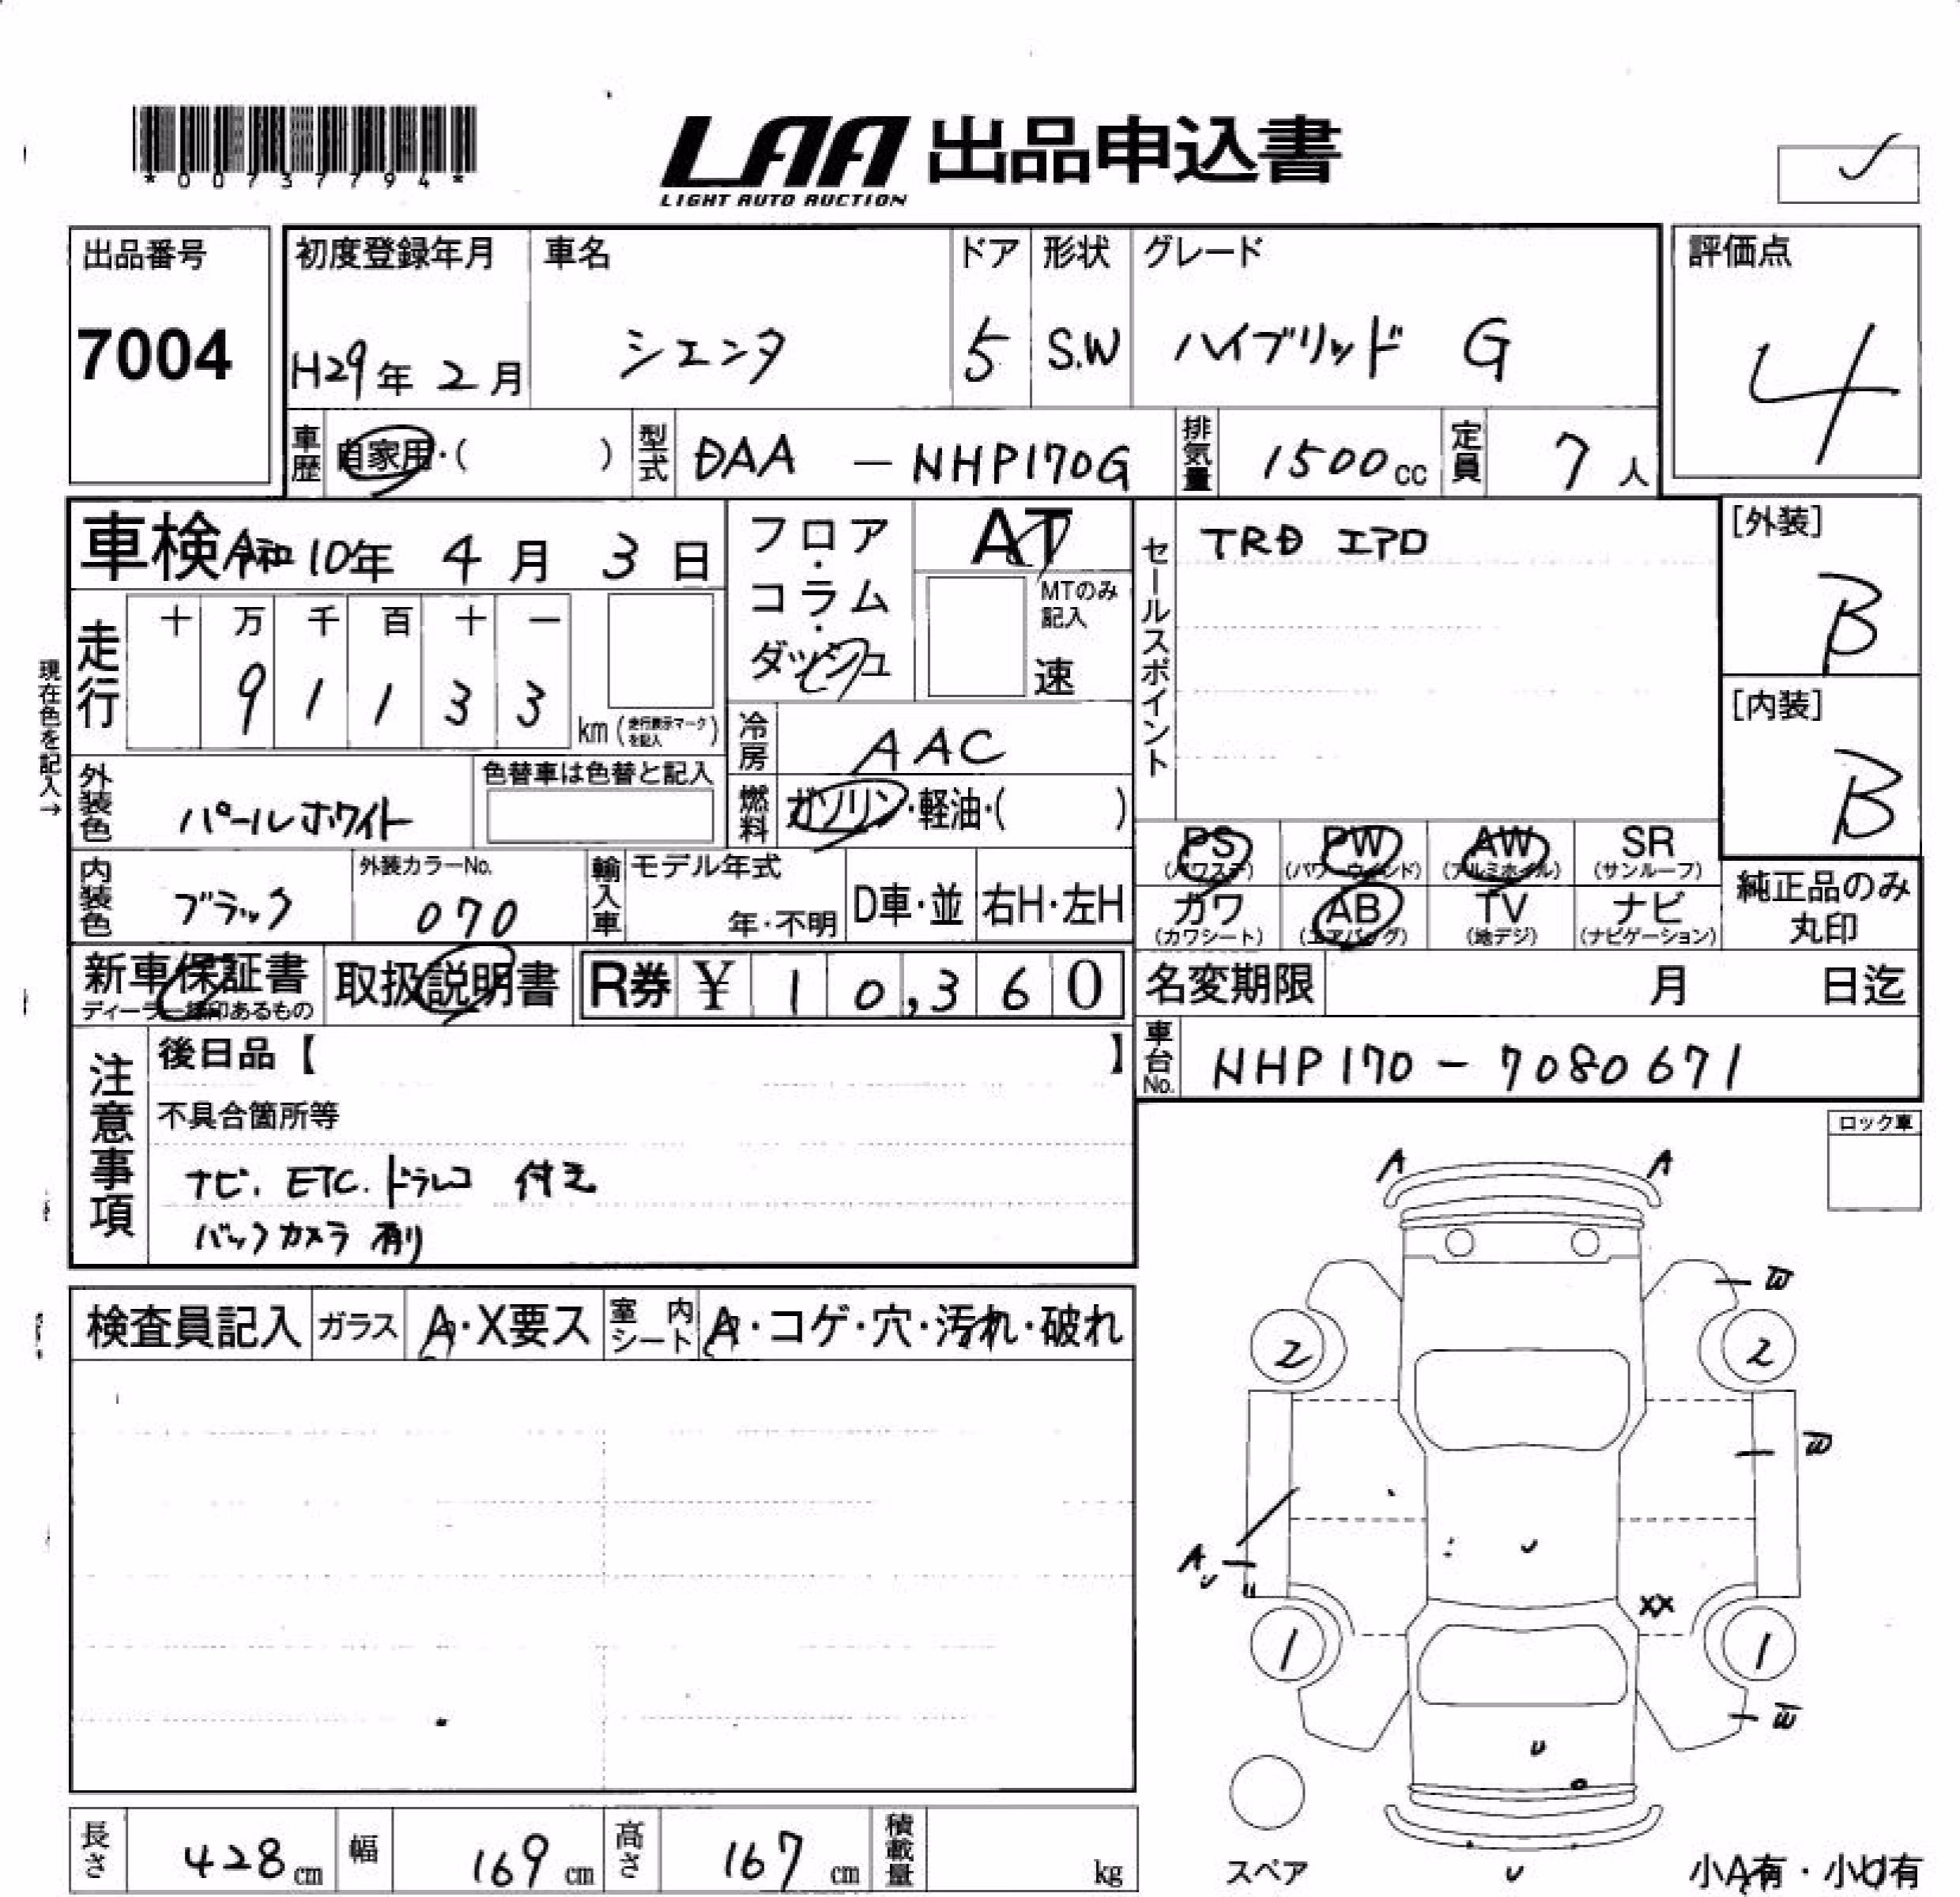 *00737794*
LAA 出品申込書
LIGHT AUTO AUCTION
出品番号 7004
初度登録年月 H29年 2月
車名 シエンタ
ドア 5
形状 S.W
グレード ハイブリッド G
評価点 4
車歴 自家用・( )
型式 DAA - NHP170G
排気量 1500cc
定員 7人
車検 令和10年 4月 3日
フロア・コラム・ダッシュ
AT
MTのみ記入 速
セールスポイント TRD エアロ
[外装] B
[内装] B
現在色を記入→
走行 十 万 千 百 十 一
9 1 1 3 3 km (走行表示マークを記入)
冷房 AAC
外装色 パールホワイト
色替車は色替と記入
燃料 ガソリン・軽油・( )
PS (パワステ) PW (パワーウィンド) AW (アルミホイル) SR (サンルーフ)
カワ (カワシート) AB (エアバッグ) TV (地デジ) ナビ (ナビゲーション)
純正品のみ丸印
内装色 ブラック
外装カラーNo. 070
輸入車 モデル年式 年・不明 D車・並 右H・左H
新車保証書
取扱説明書
R券 ¥ 10,360
名変期限 月 日迄
車台No. NHP170 - 7080671
注意事項
後日品【 】
不具合箇所等
ナビ. ETC. ドラレコ 付き
バックカメラ 有り
ロック車
検査員記入 ガラス A・X要ス 室内シート A・コゲ・穴・汚れ・破れ
A A
W
2 2
W
A U
U
XX
1 1
W
U
U
スペア
小A有・小U有
長さ 428cm 幅 169cm 高さ 167cm 積載量 kg